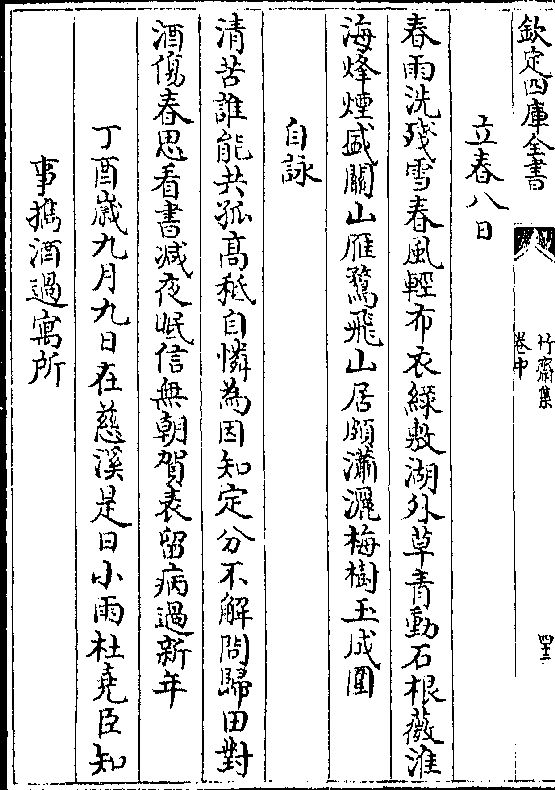 欽定四庫全書
竹齋集
卷中
四十三
立春八日
春雨洗殘雪春風輕布衣綠敷湖外草青動石根薇淮
海烽煙盛關山雁鶩飛山居頗瀟灑梅樹玉成圍
自詠
清苦誰能共孤高秪自憐為因知定分不解問歸田對
酒傷春思看書減夜眠信無朝賀表留病過新年
丁酉嵗九月九日在慈溪是日小雨杜堯臣知
事攜酒過寓所